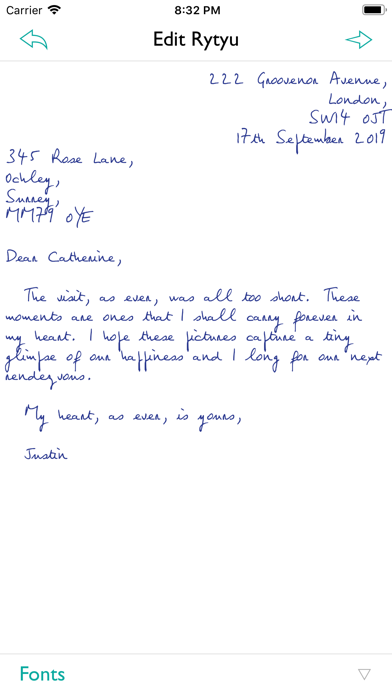 Carrier 8:32 PM
Edit Rytyu
222 Groovenor Avenue,
London,
SW14 0JT
17th September 2019
345 Rose Lane,
Ockley,
Surrey,
MM79 0YE
Dear Catherine,
The visit, as ever, was all too short. These
moments are ones that I shall carry forever in
my heart. I hope these pictures capture a tiny
glimpse of our happiness and I long for our next
rendezvous.
My heart, as ever, is yours,
Justin
Fonts